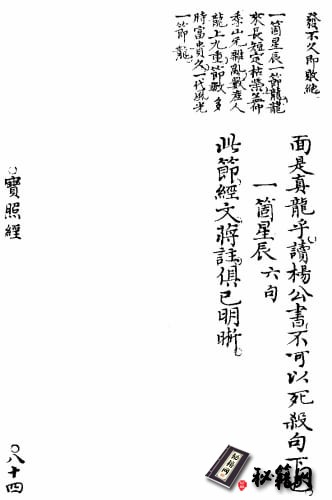 發不久即敗絕
一箇星辰一節龍龍
來長短定枯榮孟仲
季山无雜亂數產人
龍上九重節數多
時富貴久一代風光
一節龍
面是真龍乎讀楊公書不可以死殺句下
一箇星辰六句
此節經文蔣註俱已明晰
寶照經
〇八十四
秘籍网